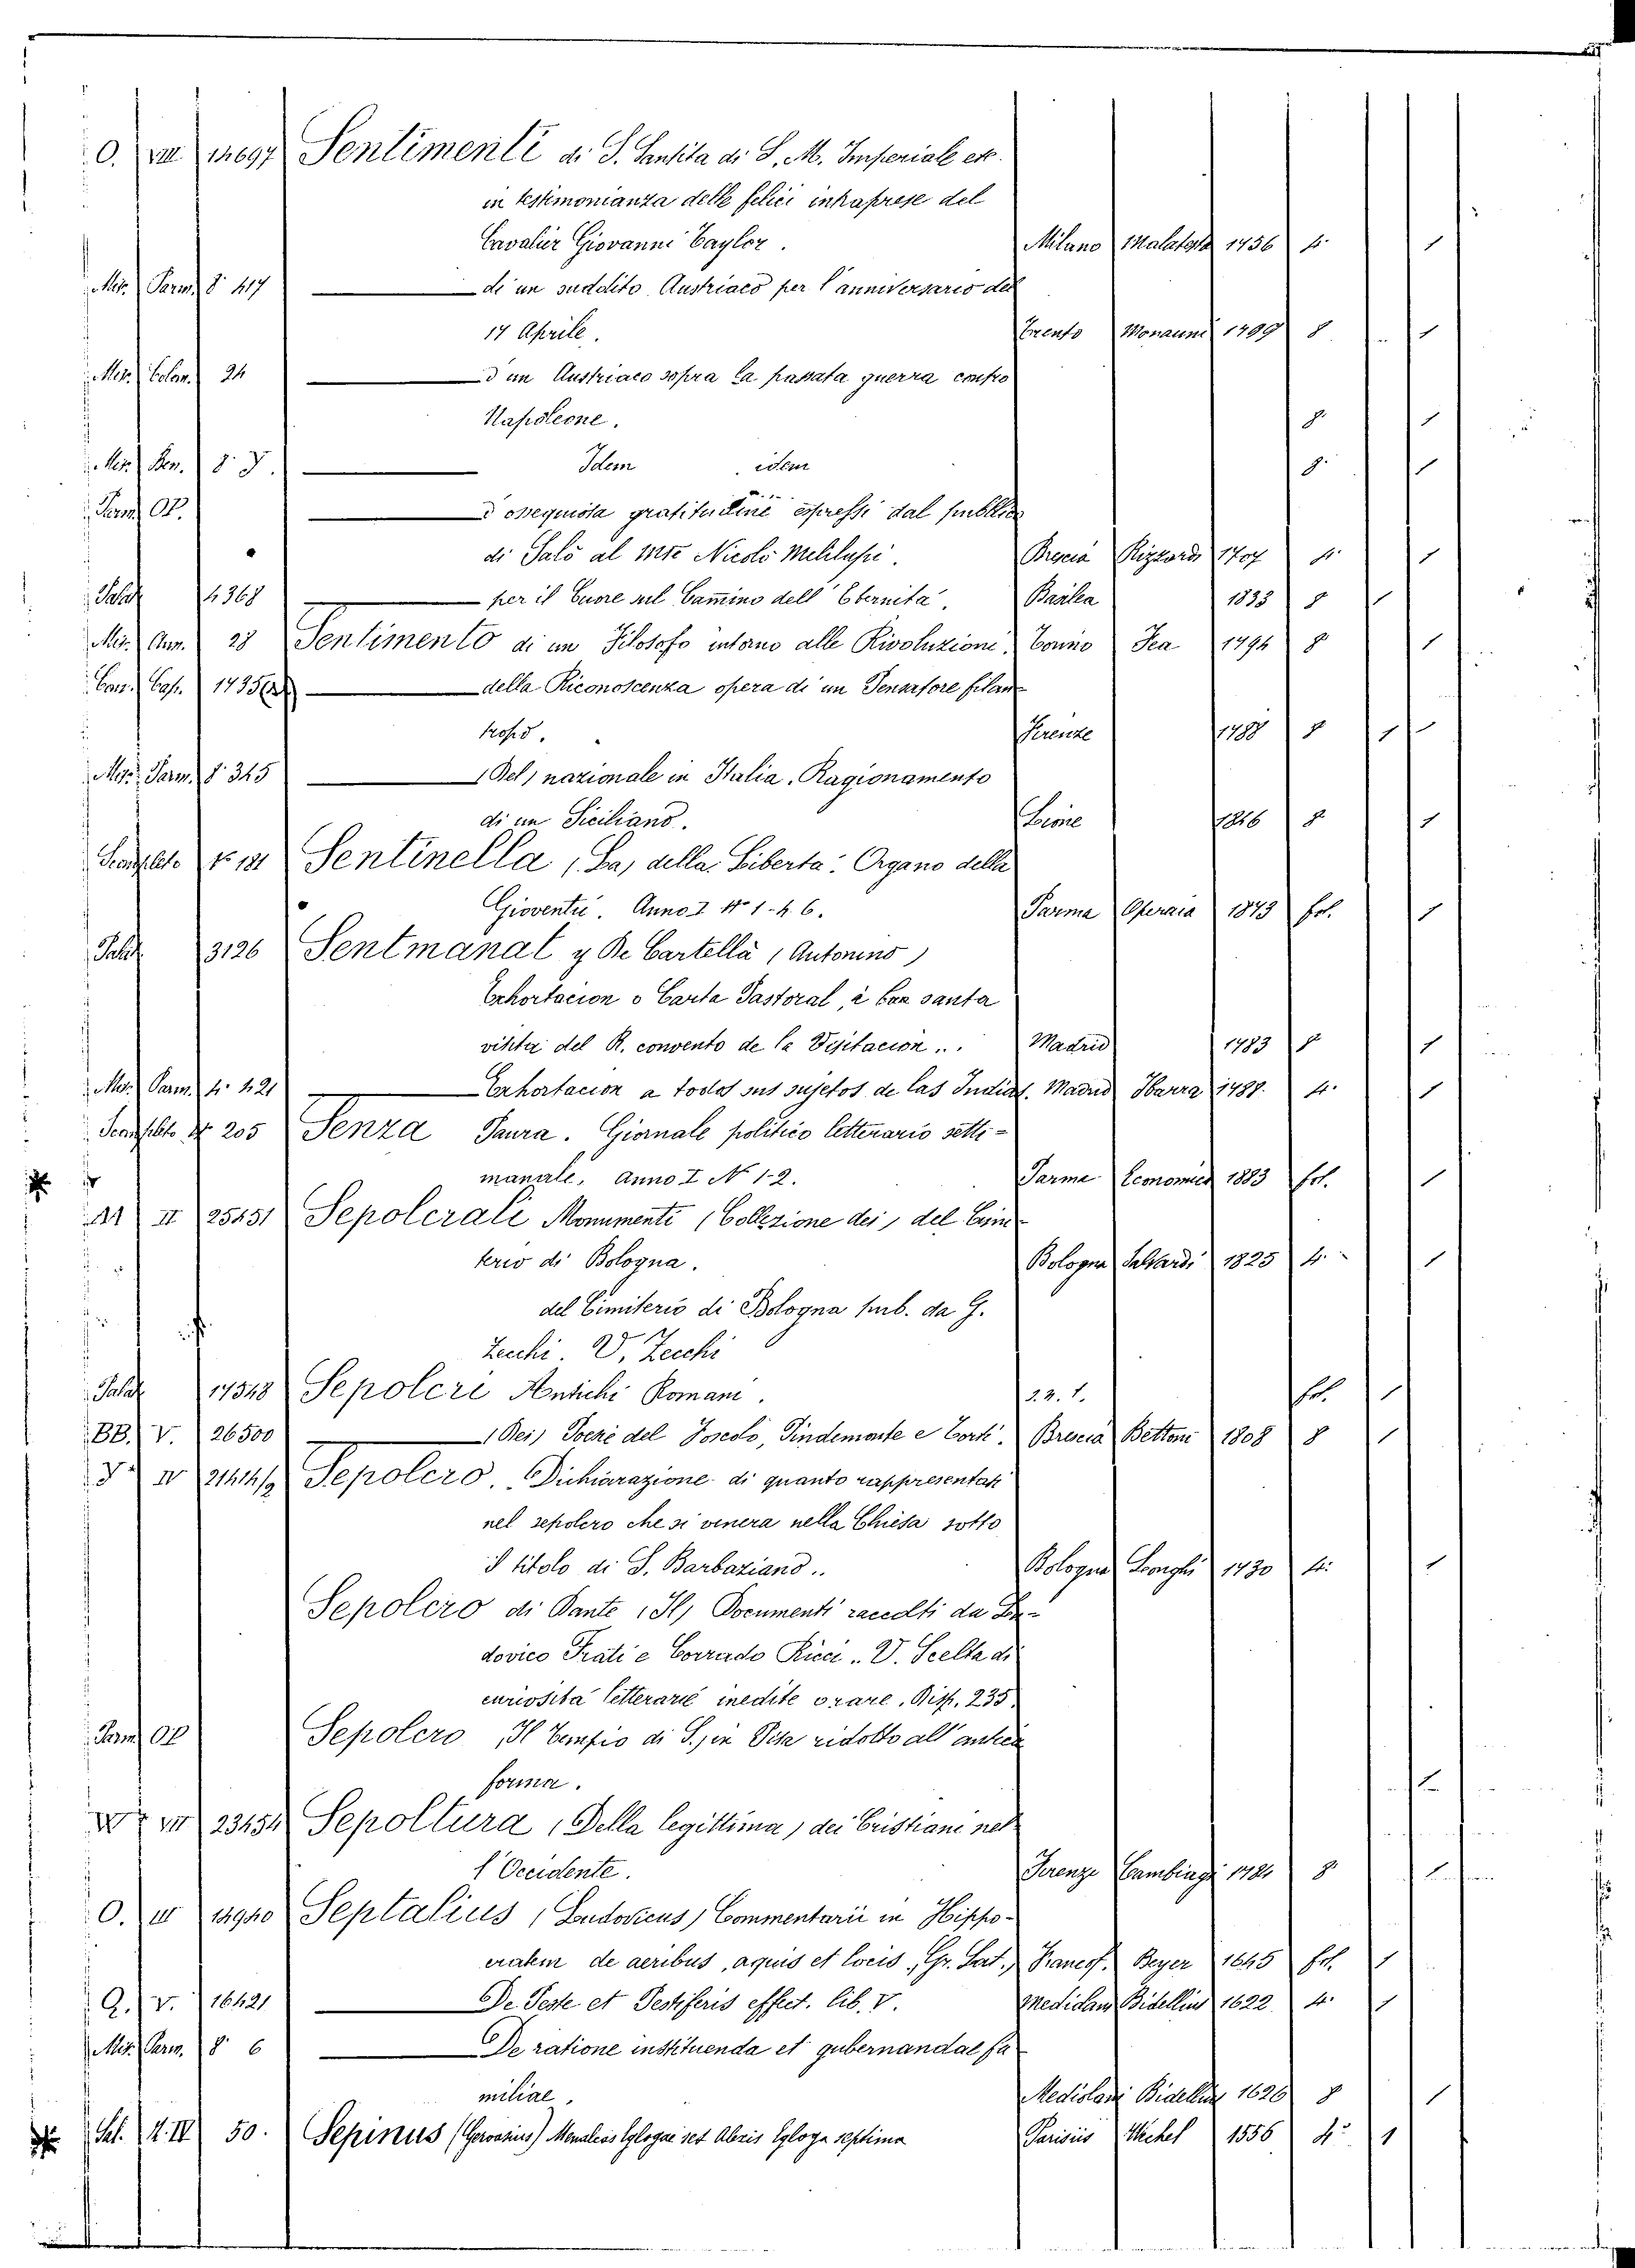 O. VIII 14697 Sentimenti di S. Santita di S. M. Imperiale etc.
in testimonianza delle felici intraprese del
Cavalier Giovanni Taylor. Milano Malatesta 1756 4. 1
Mis. Parm. 8. 417 di un suddito Austriaco per l'anniversario del
17 Aprile. Trento Monauni 1799 8 1
Mis. Colom. 24 d'un Austriaco sopra la passata guerra contro
Napoleone. 8. 1
Mis. 8. Idem idem 8. 1
Parm. OP. D'ossequiosa gratitudine espressi dal pubblico
di Salò al Nicolò Brescia Rizzardi 1707 4. 1
Palat. 4368 per il Cuore sul Cammino dell'Eternita. Basilea 1838 8 1
Mis. Ann. 28 Sentimento di un Filosofo intorno alle Rivoluzioni. Torino Fea 1794 8 1
Con. Cap. 1735 della Riconoscenza opera di un Pensatore filan
tropo. Firenze 1788 8 1
Mis. Parm. 8. 345 (Del) nazionale in Italia. Ragionamento
di un Siciliano. 1816 8 1
No 121 Sentinella (La) della Liberta. Organo della
Gioventù. Anno I No 1-4. 6. Parma Operaia 1873 fol. 1
Palat. 3126 Sentmanat y De Cartellà (Antonino)
Exhortacion o Carta Pastoral, à santa
visita del R. convento de la Visitacion.. Madrid 1783 8 1
Mis. Parm. 4. 421 Exhortacion a todos sus sujetos de las Indias. Madrid Ibarra 1788. 4. 1
No 205 Senza Paura. Giornale politico letterario setti-
manale, Anno I No 1-2. Parma Economica 1883 fol. 1
II 25451 Sepolcrali Monumenti (Collezione dei) del Cimi
terio di Bologna. Bologna Salvardi 1825 4. 1
del Cimiterio di Bologna pub. da G.
Zecchi. V. Zecchi
Palat. 14548 Sepolcri Antichi Romani. s. n. t. fol. 1
BB. V. 26500 (Dei) Poesie del Foscolo, Pindemonte e Torti. Brescia Bettoni 1808 8 1
IV 21414/2 Sepolcro. Dichiarazione di quanto rappresentasi
nel sepolcro che si venera nella Chiesa sotto
il titolo di S. Barbaziano.. Bologna Longhi 1730 4. 1
Sepolcro di Dante (Il) Documenti raccolti da Lu-
dovico Frati e Corrado Ricci.. V. Scelta di
curiosità letterarie inedite o rare. Disp. 235.
Parm. OP Sepolcro, Il Tempio di S. in Pisa ridotto all'antica
forma. 1
VII 23454 Sepoltura (Della legittima) dei Cristiani nel
l'Occidente. Firenze Cambiagi 8 1
O. III 14940 Septalius (Ludovicus) Commentarii in Hippo-
cratem de aeribus, aquis et locis, Gr. Lat. Francof. Beyer 1645 fol. 1
Q. V. 16421 De Peste et Pestiferis affect. lib. V. Mediolani Bidellius 1622 4. 1
Mis. Parm. 8. 6 De ratione instituenda et gubernandae fa
miliae. Mediolani Bidellius 1626 8 1
Sal. II. IV 50. Sepinus (Gervasius) Menalcas Ecloga set Alexis Egloga septima Parisiis Wechel 1556 4. 1